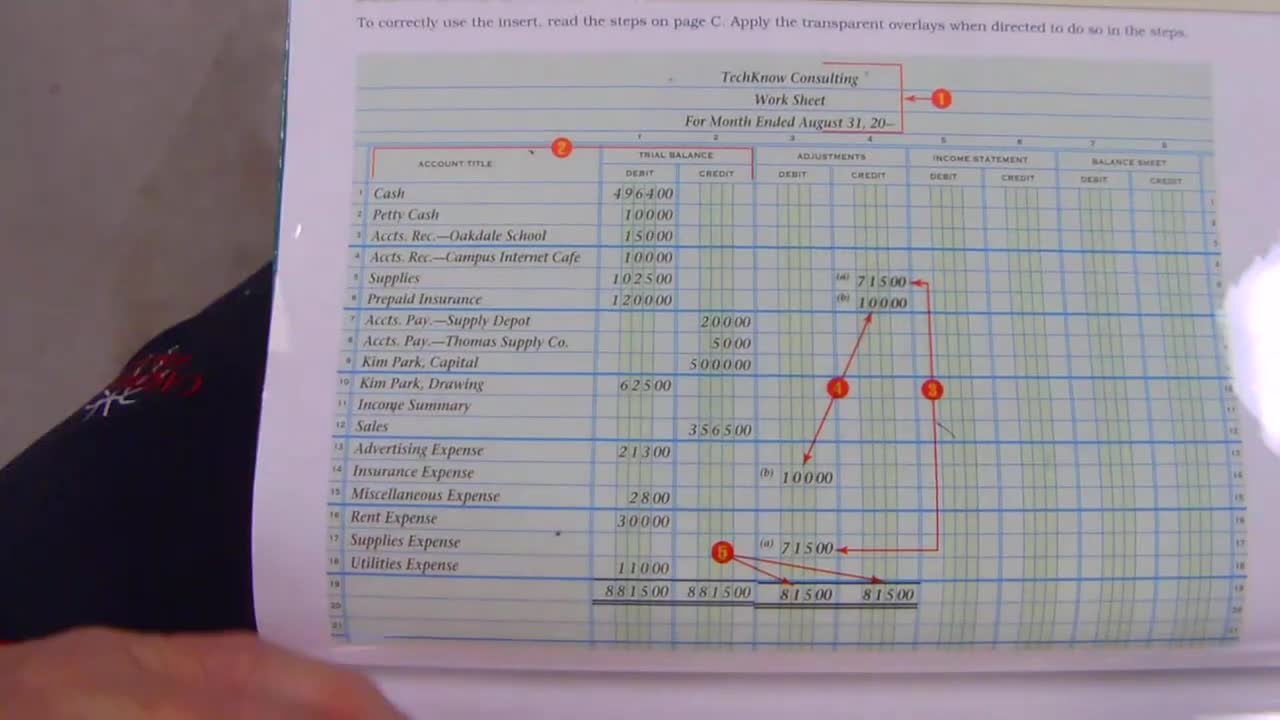 To correctly use the insert, read the steps on page C. Apply the transparent overlays when directed to do so in the steps.
TechKnow Consulting
Work Sheet
For Month Ended August 31, 20–
1
1 2 3 4 5 6 7 8
2
ACCOUNT TITLE TRIAL BALANCE ADJUSTMENTS INCOME STATEMENT BALANCE SHEET
DEBIT CREDIT DEBIT CREDIT DEBIT CREDIT DEBIT CREDIT
1 Cash 496400 1
2 Petty Cash 10000
3 Accts. Rec.—Oakdale School 15000
4 Accts. Rec.—Campus Internet Cafe 10000
5 Supplies 102500 (a) 71500
6 Prepaid Insurance 120000 (b) 10000
7 Accts. Pay.—Supply Depot 20000
8 Accts. Pay.—Thomas Supply Co. 5000
9 Kim Park, Capital 500000
10 Kim Park, Drawing 62500 4 3 10
11 Income Summary 11
12 Sales 356500 12
13 Advertising Expense 21300 13
14 Insurance Expense (b) 10000 14
15 Miscellaneous Expense 2800 15
16 Rent Expense 30000 16
17 Supplies Expense 5 (a) 71500 17
18 Utilities Expense 11000 18
19 881500 881500 81500 81500 19
20 20
21 21